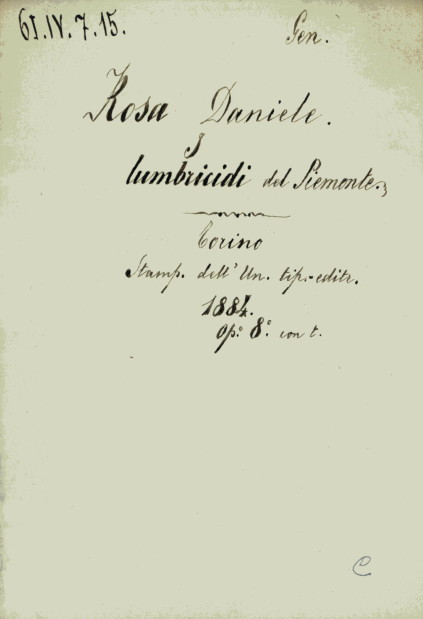 61.IV.7.15.
Gen.
Rosa Daniele.
I
lumbricidi del Piemonte.
Torino
Stamp. dell' Un. tip.-editr.
1884.
op.º 8.º con t.
C